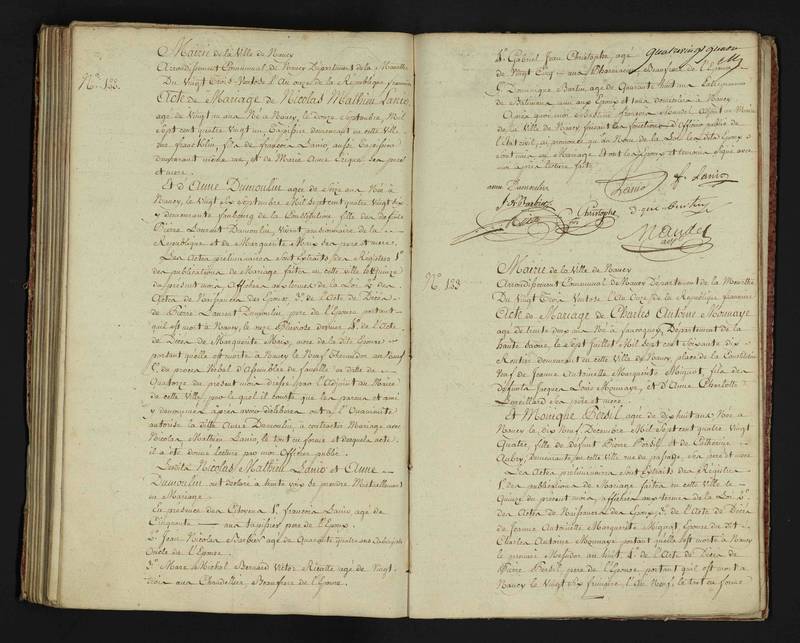 Mairie de la Ville de Nancy
Arrondissement Communal de Nancy Département de la Meurthe
Du Vingt Trois Ventose l'An onze de la République française
N.° 132.
Acte de Mariage de Nicolas Mathieu Lanio,
agé de vingt ans Né à Nancy, le douze Septembre Mil
Sept cent quatre vingt un, Tapissier demeurant en cette Ville
fils de françois Lanio, aussi Tapissier
demeurant même rue, et de Marie Anne ses père
et mere.
Et d'Anne Dumoulin agée de Seize ans Née à
Nancy, le vingt Six Septembre Mil Sept cent quatre vingt six
y demeurante faubourg de la Constitution fille des defunts
Pierre Laurent Dumoulin, Vivant pensionnaire de la
République et de Marguerite Maix ses père et mere.
Les Actes preliminaires sont Extraits des Registres 1.°
des publications de Mariage faites en cette ville le Quinze
du present mois, Affichés aux termes de la Loi, 2.° des
Actes de Naissances des Epoux, 3.° de l'Acte de Décès
de Pierre Laurent Dumoulin, pere de l'Epouse portant
qu'il est mort à Nancy, le onze Pluviose dernier 4.° de l'Acte
de Décès de Marguerite Maix, mere de la dite Epouse
portant qu'elle est morte à Nancy le Neuf Thermidor an neuf
5.° du procès Verbal d'Assemblée de famille en datte du
Quatorze du present mois dressé par l'Adjoint au Maire
de cette Ville, par le quel il conste que les parens et amis
y denommés après avoir délibéré ont à l'Unanimité
autorisé la dite Anne Dumoulin, à contracter Mariage avec
Nicolas Mathieu Lanio, le tout en forme et desquels actes
il a été donné lecture par moi Officier public.
Lesdits Nicolas Mathieu Lanio et Anne
Dumoulin ont declaré à haute voix se prendre Mutuellement
en Mariage.
En presence des Citoyens 1.° françois Lanio, agé de
Cinquante ans tapissier pere de l'Epoux.
2.° Jean Nicolas Barbier agé de Quarante quatre ans
Oncle de l'Epouse.
3.° Marc Michel Bernard Victor agé de Vingt
trois ans Chandellier, Beaufrere de l'Epouse.
quatre vingt quatre
4.° Gabriel Jean Christophe, agé
de Vingt Cinq ans Beaufrere de l'Epouse
5.° Dominique Bartin, agé de Quarante huit ans Entrepreneur
de Batimens ami aux Epoux et tous domiciliés à Nancy
Après quoi moi françois Mandel Adjoint au Maire
de la Ville de Nancy faisant les fonctions d'Officier public de
l'Etat civil, ai prononcé qu'au Nom de la Loi les dits Epoux
sont unis en Mariage Et ont les Epoux et temoins signé avec
moi après lecture faite
anne Dumoulin
Lanio
f. Lanio
Barbier
Christophe
Mandel
adj.
N.° 133
Mairie de la Ville de Nancy
Arrondissement Communal de Nancy Département de la Meurthe
Du Vingt Trois Ventose l'An Onze de la République française
Acte de Mariage de Charles Antoine Momaye
agé de trente deux ans Né à faucogney, Département de la
haute Saone, le Sept Juillet Mil Sept cent Soixante dix
Routier demeurant en cette Ville de Nancy, place de la Constitution
Veuf de Jeanne Antoinette Marguerite Miquot, fils des
defunts Jacques Louis Momaye, et d'Anne Charlotte
ses père et mere.
Et Monique Persil agée de dix huit ans Née à
Nancy le dix Neuf Decembre Mil Sept cent quatre Vingt
Quatre, fille de defunt Pierre Persil et de Catherine
Aubry, demeurante en cette Ville rue du passage, ses père et mere
Les Actes preliminaires sont Extraits des Registres
1.° des publications de Mariage faites en cette Ville le
Quinze du present mois, affichés aux termes de la Loi 2.°
des Actes de Naissances des Epoux, 3.° de l'Acte de Décès
de Jeanne Antoinette Marguerite Miquot Epouse du dit
Charles Antoine Momaye portant qu'elle est morte à Nancy
le premier Messidor an huit 4.° de l'Acte de Décès de
Pierre Persil, pere de l'Epouse, portant qu'il est mort à
Nancy le Vingt Six frimaire, l'An Neuf, le tout en forme